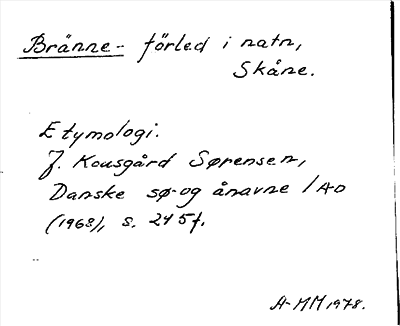 Bränne- förled i natn,
Skåne.
Etymologi:
J. Kousgård Sørensen,
Danske sø- og ånavne 1 A-D
(1968), s. 245f.
A-MM 1978.